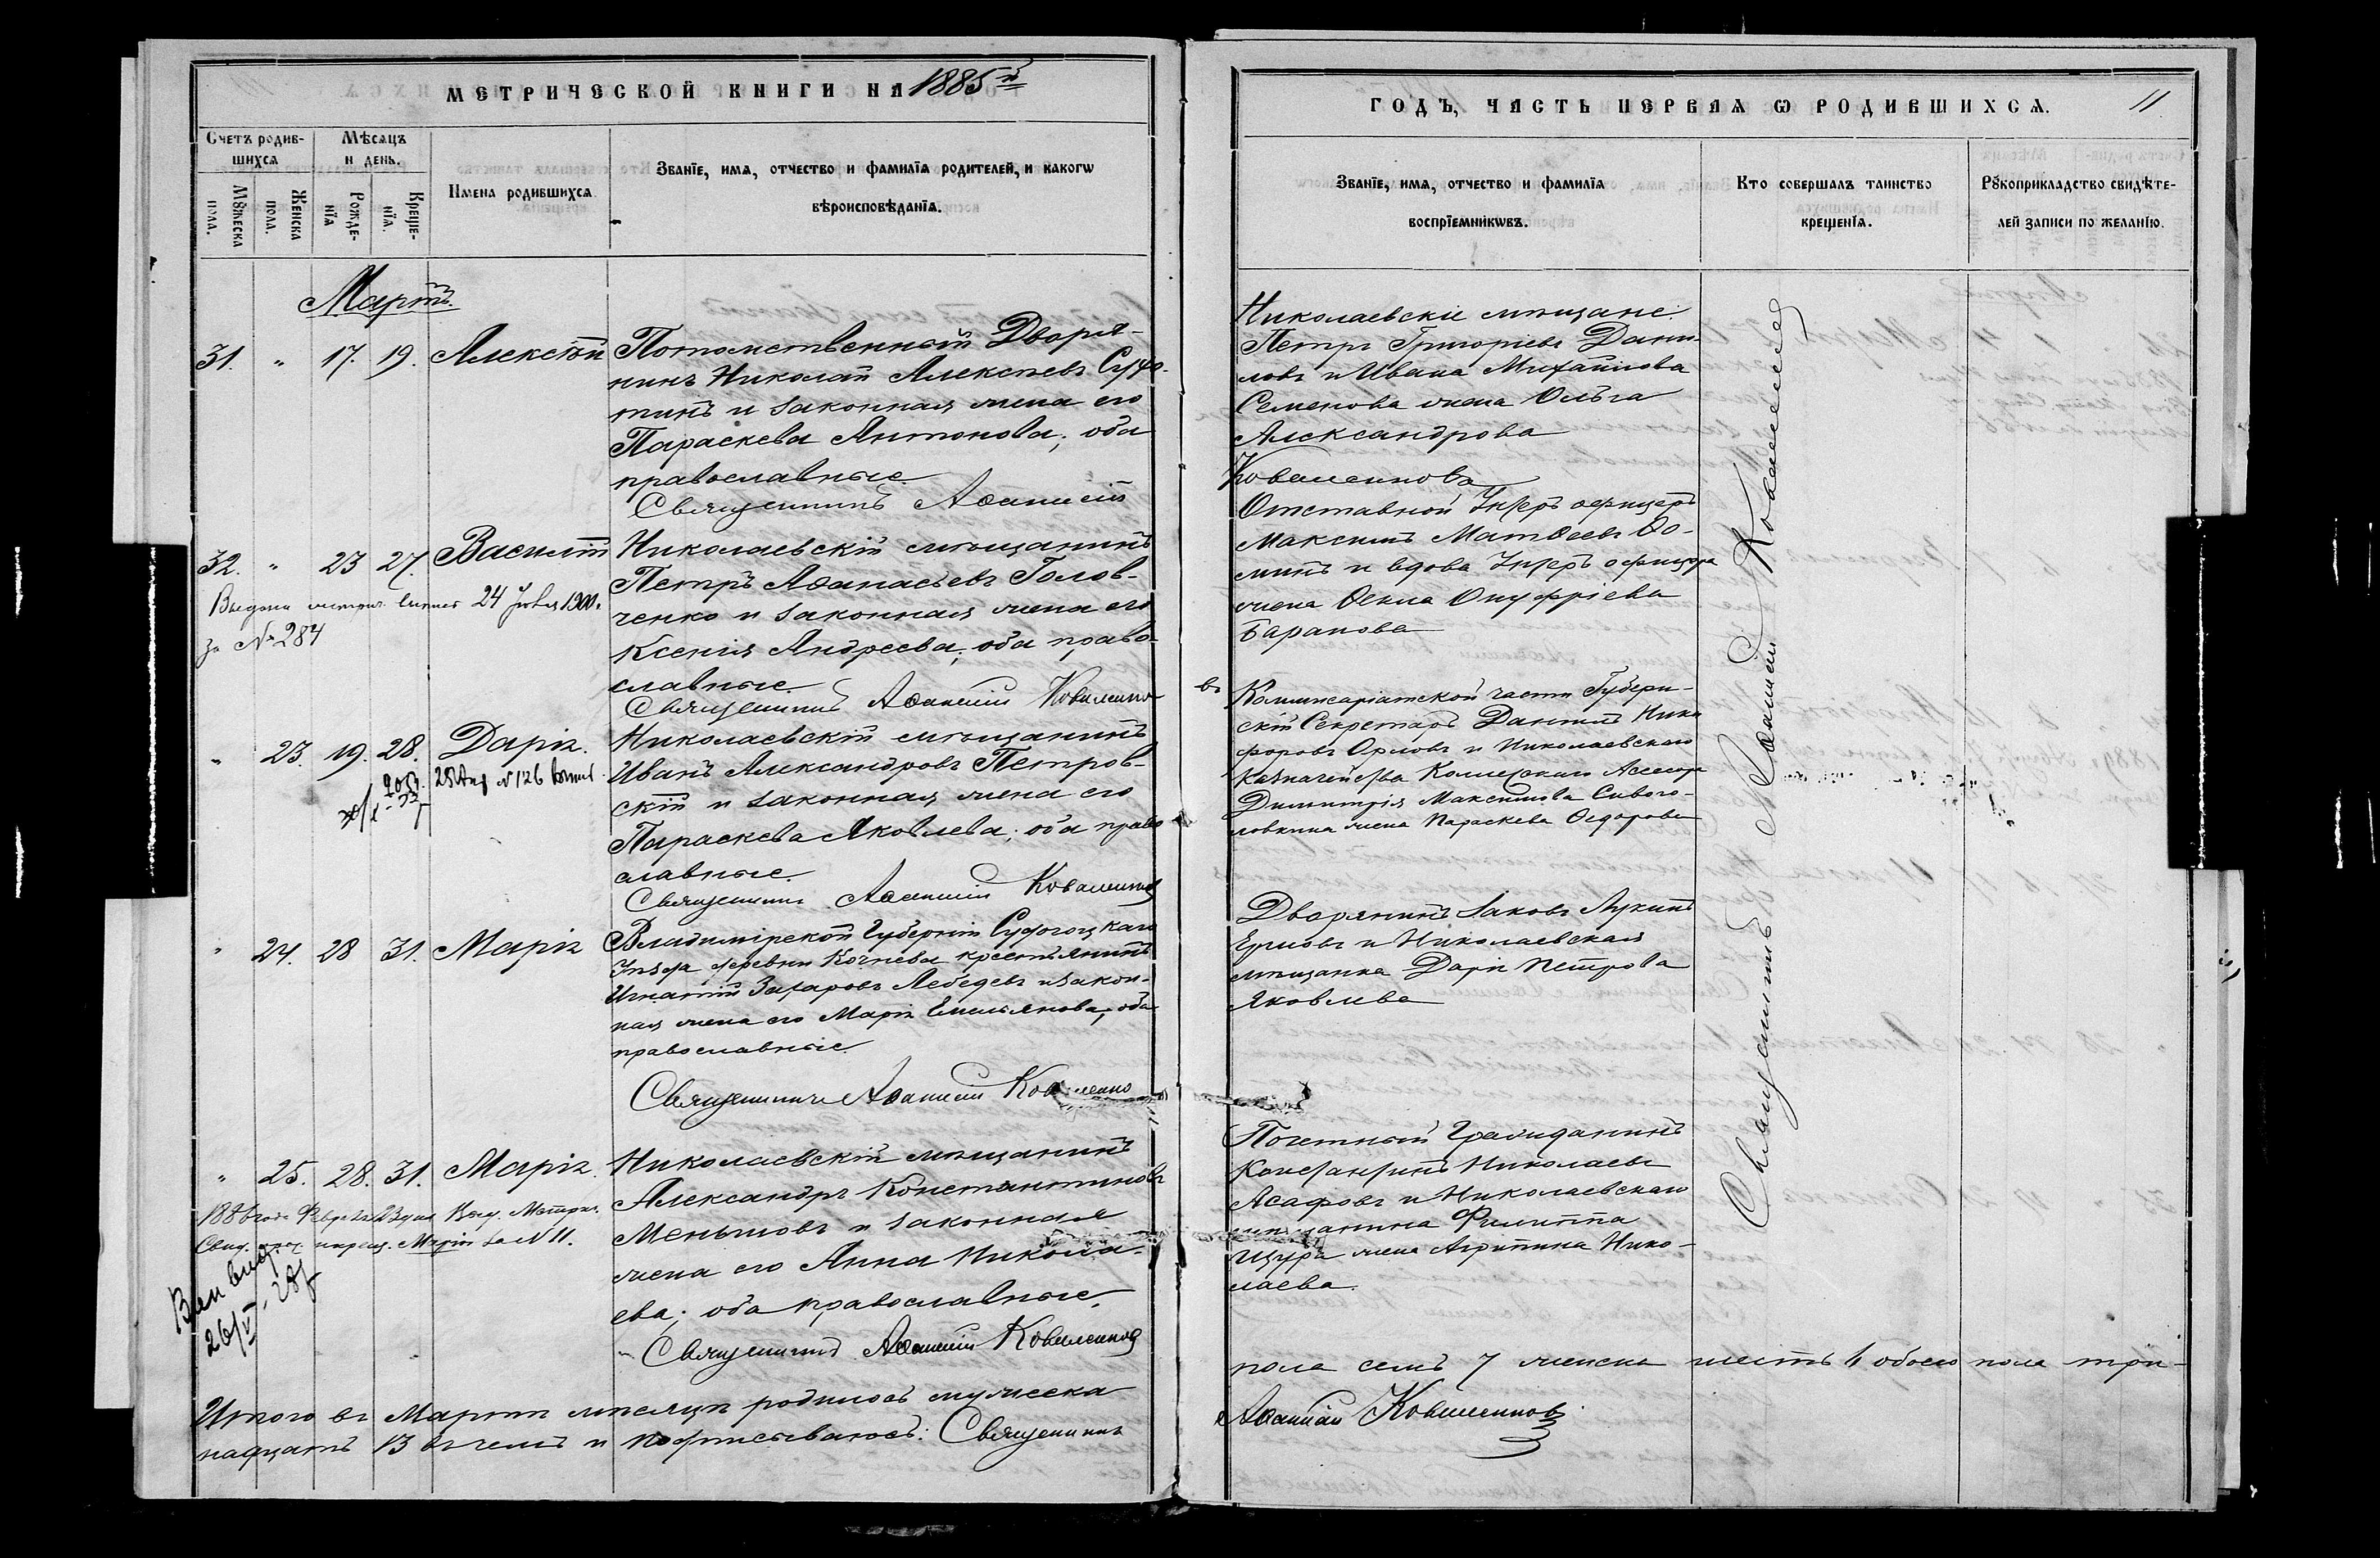 МЕТРИЧЕСКОЙ КНИГИ НА 1885й
ГОДЪ, ЧАСТЬ ПЕРВАЯ Ѡ РОДИВШИХСЯ. 11
Счетъ родив-
шихся
Мꙋжеска пола.
Женска пола.
Мѣсяцъ
и день.
Рожде-
нїя
Креще-
нїя.
Имена родившихся
Званїе, имя, отчество и фамилїя родителей, и какогѡ
вѣроисповѣданїя.
Званїе, имя, отчество и фамилїя
воспрїемникѡвъ.
Кто совершалъ таинство
крещенїя.
Рꙋкоприкладство свидѣте-
лей записи по желанїю.
Мартъ.
31. " 17. 19. Алексѣй
Потомственный Дворя-
нинъ Николай Алексѣевъ
и законная жена его
Параскева Антонова; оба
православные
Священникъ Аѳанасій
Николаевскіе мѣщане
Петръ Григоріевъ Дани-
ловъ и Ивана Михайлова
Семенова жена Ольга
Александрова
Коваленковъ
32. " 23 27. Василій
Выдана метрич. выпись 24 1900 г.
за № 284
Николаевскій мѣщанинъ
Петръ Аѳанасьевъ Голов-
ченко и законная жена его
Ксенія Андреева; оба право-
славные.
Священникъ Аѳанасій Коваленко
Отставной Унтеръ офицеръ
Максимъ Матвѣевъ Ѳо-
минъ и вдова Унтеръ офицера
жена Ѳекла Онуфріева
Баранова
" 23. 19. 28. Дарія.
25 Апр № 126
Николаевскій мѣщанинъ
Иванъ Александровъ Петров-
скій и законная жена его
Параскева Яковлева; оба право
славные.
Священникъ Аѳанасій Коваленковъ
въ Коммисаріатской части Губерн-
скій Секретарь Даніилъ Ники
форовъ Орловъ и Николаевскаго
Казначейства Коллежскаго Асесора
Димитрія Максимова Сивого-
ловкина жена Параскева Ѳедорова
" 24. 28 31. Марія
Владимірской Губерніи Судогодскаго
Уѣзда деревни Кочнева крестьянинъ
Игнатій Захаровъ Лебедевъ и закон-
ная жена его Марія Емельянова; оба
православные.
Священникъ Аѳанасій Коваленко
Дворянинъ Іаковъ Лукинъ
и Николаевская
мѣщанка Дарія Петрова
Яковлева
" 25. 28. 31. Марія.
1886 года Февраля Выд. Метрич.
Свид. о крещ. Маріи за № 11.
26/V-28 г
Николаевскій мѣщанинъ
Александръ Константиновъ
Меньшовъ и законная
жена его Анна Никола-
ева; оба православные.
Священникъ Аѳанасій Коваленковъ
Почетный Гражданинъ
Константинъ Николаевъ
Асафовъ и Николаевскаго
мѣщанина Филиппа
Щура жена Агрипина Нико-
лаева.
Священникъ Аѳанасій Коваленковъ
Итого въ Мартѣ мѣсяцѣ родилось мужеска
пола семь 7 женска шесть 6 обоего пола три-
надцать 13 въ чемъ и подписываюсь: Священникъ
Аѳанасій Коваленковъ